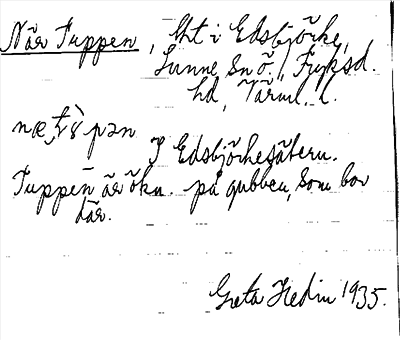 När Tuppen, lht i Edsbjörke,
Sunne sn ö., Fryksd.
hd, Värml. l.
I Edsbjörkesätern.
Tuppen är ökn. på gubben, som bor
där.
Greta Hedin 1935.